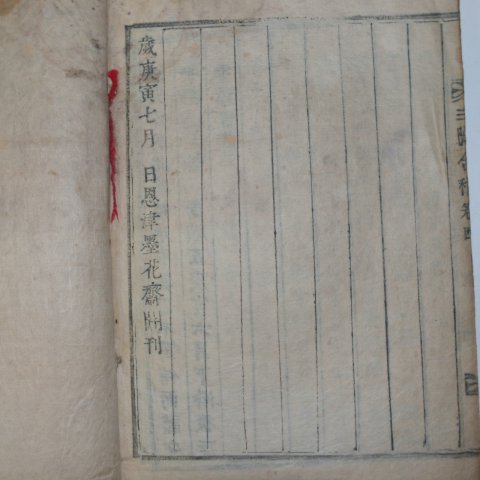 三隱合稿卷四
歲庚寅七月 日恩津墨花齋開刊